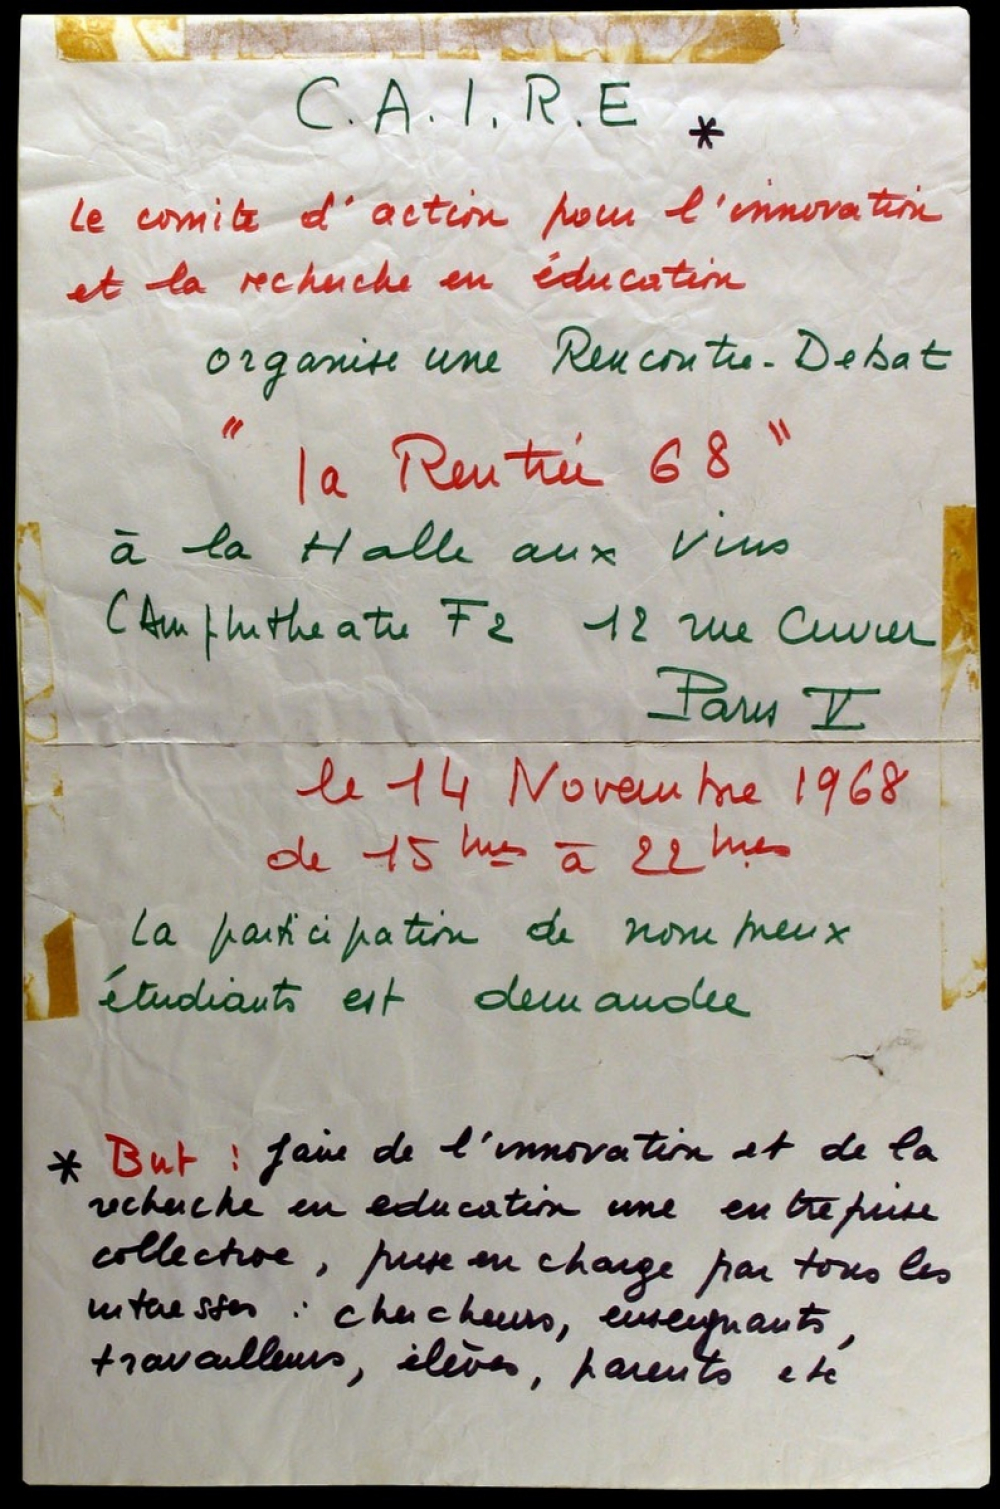 C.A.I.R.E *
Le comité d'action pour l'innovation
et la recherche en éducation
organise une Rencontre-Debat
" la Rentrée 68 "
à la Halle aux Vins
(Amphitheatre F2 12 rue Cuvier
Paris V
le 14 Novembre 1968
de 15 hres à 22 hres
La participation de nombreux
étudiants est demandee
* But : faire de l'innovation et de la
recherche en education une entreprise
collective, prise en charge par tous les
interesses : chercheurs, enseignants,
travailleurs, élèves, parents etc